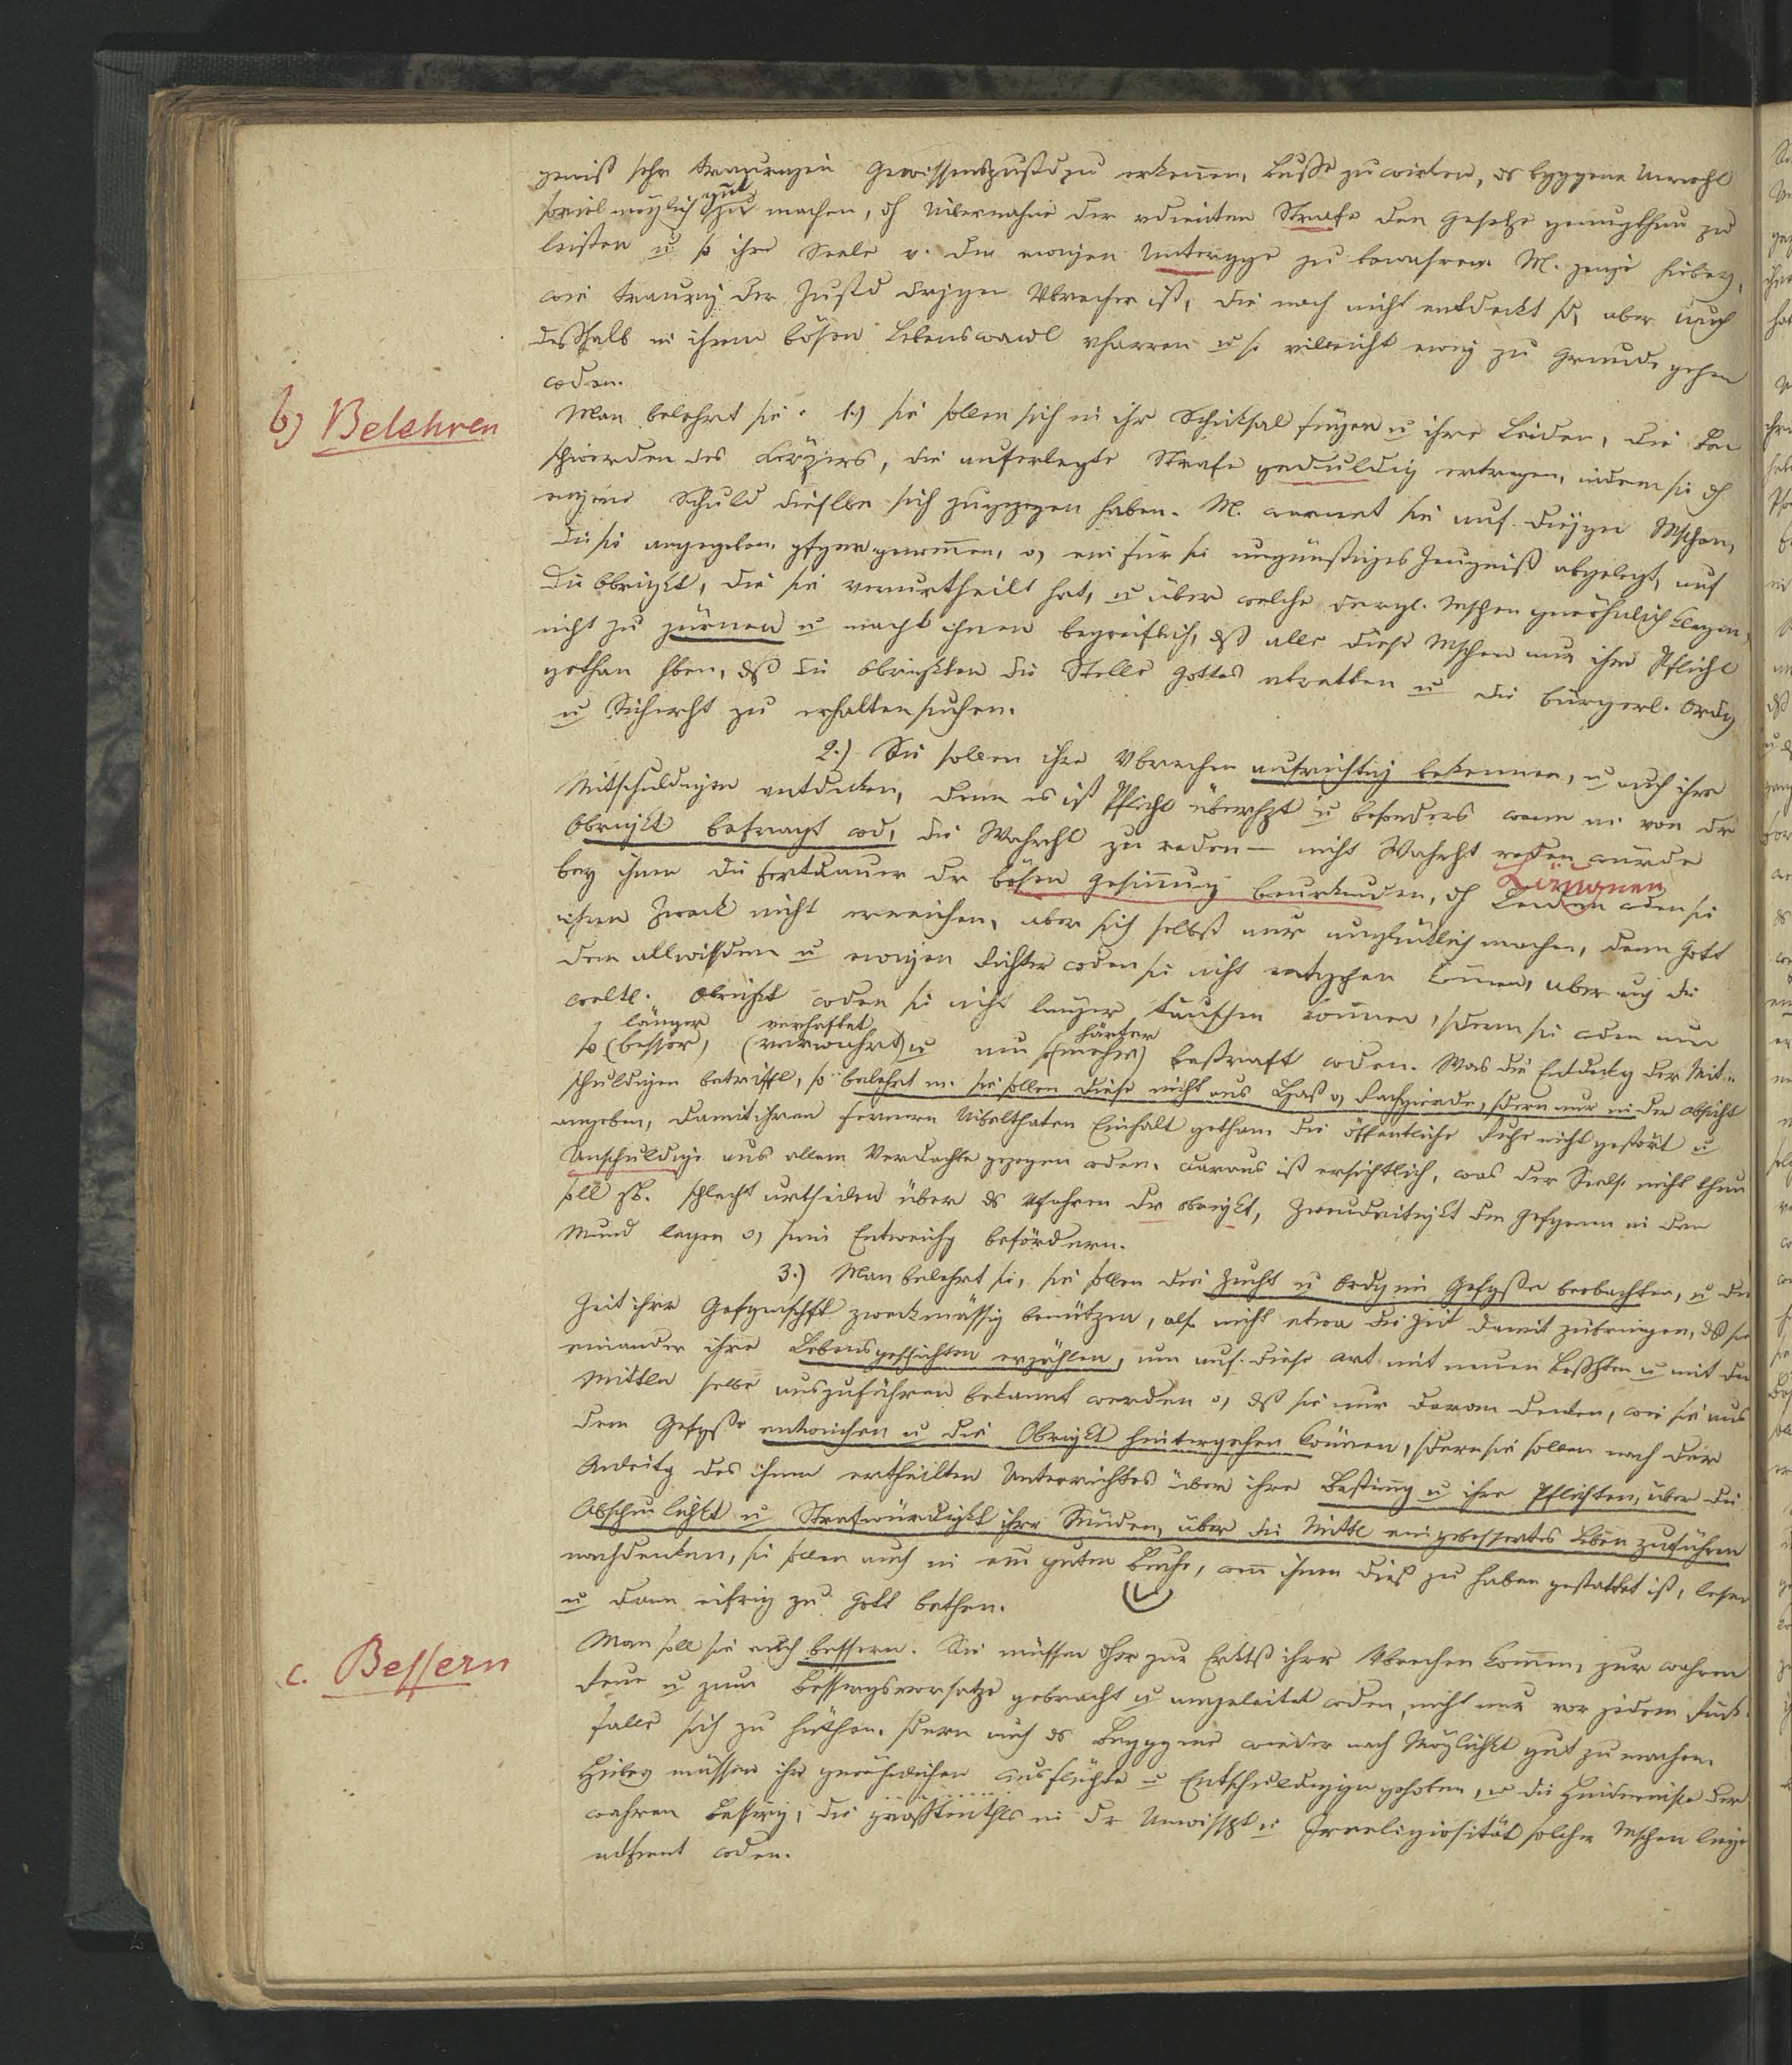 gewiß sehr traurigen Gewissenszustd zu erkennen, Buße zu wirken, ds begggene Unrecht
soviel möglich gut zu machen, dh Übernahme der vdienten Strafe den Gesetze genugthun zu
leisten u so ihre Seele v. dem ewigen Untergge zu bewahren. M. zeige hiebey,
wie traurig der Zustd drjgen Vbrecher ist, die noch nicht entdeckt sd, aber auch
deßhalb in ihrem bösen Lebenswandl vharren u so vielleicht ewig zu Grunde gehen
wden.
b) Belehren
Man belehrt sie. 1.) sie sollen sich in ihr Schiksal fügen u ihre Leiden, die Be
schwerden des Körpers, die auferlegte Strafe geduldig ertragen, indem sie dh
eigene Schuld dieselbe sich zugezogen haben. M. warnet sie auf diejgen Mschen,
die sie angegeben, gfgen genommen, o, ein für sie ungünstiges Zeugniß abgelegt, auf
die Obrigkt, die sie verurtheilt hat, u über welche dergl. Mschen gwöhnlich klagen,
nicht zu zürnen u macht ihnen begreiflich, dß alle diese Mschen nur ihre Pflicht
gethan hben, dß die Obrigkten die Stelle Gottes vtretten u die bürgerl. Ordg
u Sicherht zu erhalten suchen.
2.) Sie sollen ihre Vbrechen aufrichtig bekennen, u auch ihre
Mitschuldigen entdeken, denn es ist Pflicht überhpt u besonders wenn m von dr
Obrigkt befragt wd, die Wahrht zu reden – nicht Wahrht reden würde
bey ihnen die Fortdauer dr bösen Gesinnung beurkunden, dh Läugnen wden sie
ihren Zweck nicht erreichen, aber sich selbst nur unglüklich machen, denn Gott
dem allwissdem u ewigen Richter wden sie nicht entgehen können, aber auch die
weltl. Obrigkt wden sie nicht länger täuschen können, sdern sie wden nur
länger verhaftet härter
so (besser) (verwahrt) u um so (mehr) bestraft wden. Was die Entdekg der Mit-
schuldigen betrifft, so belehrt m. sie sollen diese nicht aus Haß o, Rachgierde, sdern nur in der Absicht
angeben, damit ihren fernern Übelthaten Einhalt gethan, die öffentliche Ruhe nicht gestört u
Unschuldige aus allem Verdachte gezogen wden. Daraus ist ersichtlich, was der Seels. nicht thun
soll zb. schlecht urtheilen über ds Vfahren dr Obrigkt, Zweudeitigkt dem Gefgenen in den
Mund legen o, seine Entweichg befördern.
3.) Man belehrt sie, sie sollen die Zucht u Ordg im Gefgße beobachten, u die
Zeit ihrer Gefgenschft zweckmässig benützen, also nicht etwa die Zeit damit zubringen, dß sie
einander ihre Lebensgeschichten erzählen, um auf diese Art mit neuen Bosshten u mit den
Mitteln selbe auszuführen bekannt werden o, dß sie nur daran denken, wie sie aus
dem Gefgße entweichen u die Obrigkt hintergehen können, sdern sie sollen nach der
Anleitg des ihnen ertheilten Unterrichtes über ihre Bestimg u ihre Pflichten, über die
Abscheulichkt u Strafwürdigkt ihrer Sünden, über die Mittl ein gebessertes Leben zu führen
nachdenken, sie sollen auch in ein guten Buche, wenn ihnen dieß zu haben gestattet ist, lesen
u dann eifrig zu Gott bethen.
c. Bessern
Man soll sie auch bessern. Sie müssen dher zur Erktß ihrer Vbrechen kommen, zur wahren
Reue u zum Besserungsvorsatze gebracht u angeleitet wden, nicht nur vor jedem Rück-
falle sich zu hüthen, sdern auch ds Begggene wieder nach Möglichkt gut zu machen.
Hiebey müssen ihre gewöhnlichen Ausflüchte u Entschuldiggen gehoben, u die Hindernisse der
wahren Besserg, die großtentheils in dr Unwissht u Irreligiosität solcher Mschen liegen
entfernt wden.